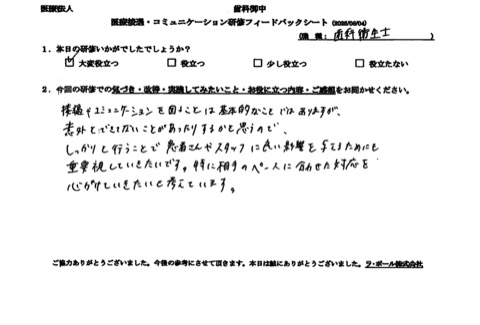 医療法人　　　　　　歯科御中
医療接遇・コミュニケーション研修フィードバックシート (2025/06/04)
(職 種: 歯科衛生士 )
1. 本日の研修いかがでしたでしょうか?
☑ 大変役立つ　□ 役立つ　□ 少し役立つ　□ 役立たない
2. 今回の研修での気づき・改善・実践してみたいこと・お役に立つ内容・ご感想をお聞かせください。
接遇やコミュニケーションを図ることは基本的なことではありますが、
意外とできていないことがあったりするかと思うので、
しっかりと行うことで患者さんやスタッフに良い影響を与えるためにも
重要視していきたいです。特に相手のペースに合わせた対応を
心がけていきたいと考えています。
ご協力ありがとうございました。今後の参考にさせて頂きます。本日は誠にありがとうございました。ラ・ポール株式会社